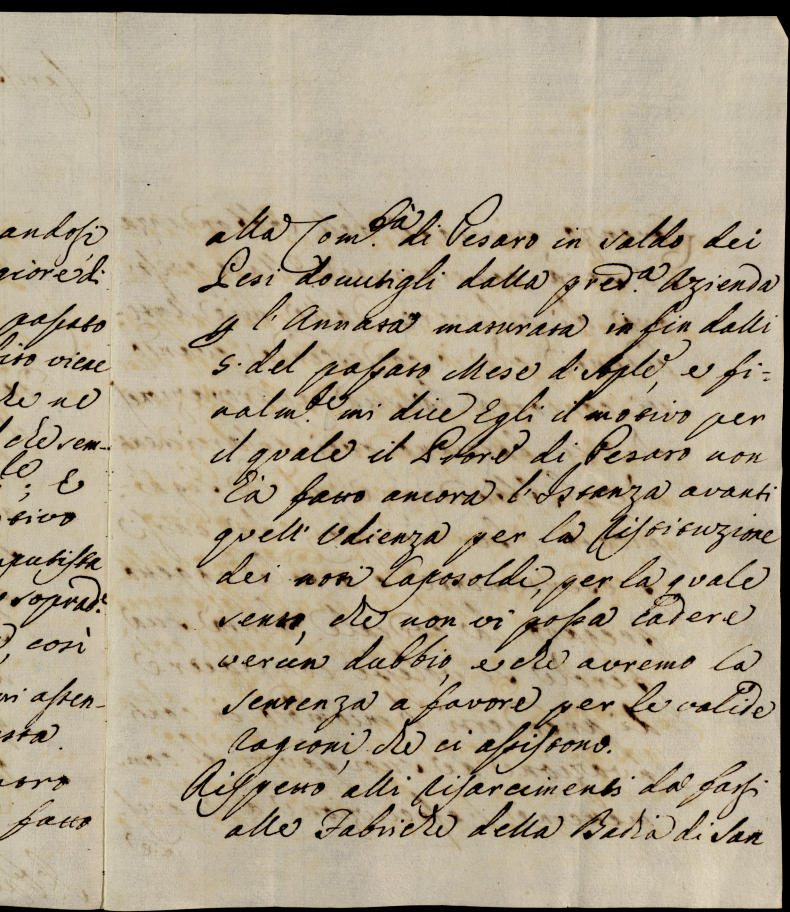 andosi
giore di
passato
bito viene
che ne
che sem-
le
; E
otivo
putissa
soprad.e
, così
vi assen-
sta.
fatto
alla Com.tà di Pesaro in saldo dei
Pesi dovutigli dalla pred.a Azienda
p l'Annata maturata in fin dalli
5. del passato Mese d'Aple, e fi=
nalm.te mi dice Egli il motivo per
il quale il Priore di Pesaro non
hà fatto ancora l'Istanza avanti
quell'Udienza per la Ristituzione
dei noti Caposoldi, per la quale
sento, che non vi possa cadere
verùn dubbio, e che avremo la
sentenza a favore per le valide
ragioni, che ci assistono.
Rispetto alli risarcimenti da farsi
alle Fabriche della Badia di San